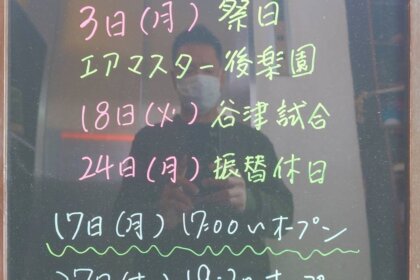 3日(月)祭日
エアマスター後楽園
18日(火)谷津試合
24日(月)振替休日
17日(月)17:00〜オープン
27日